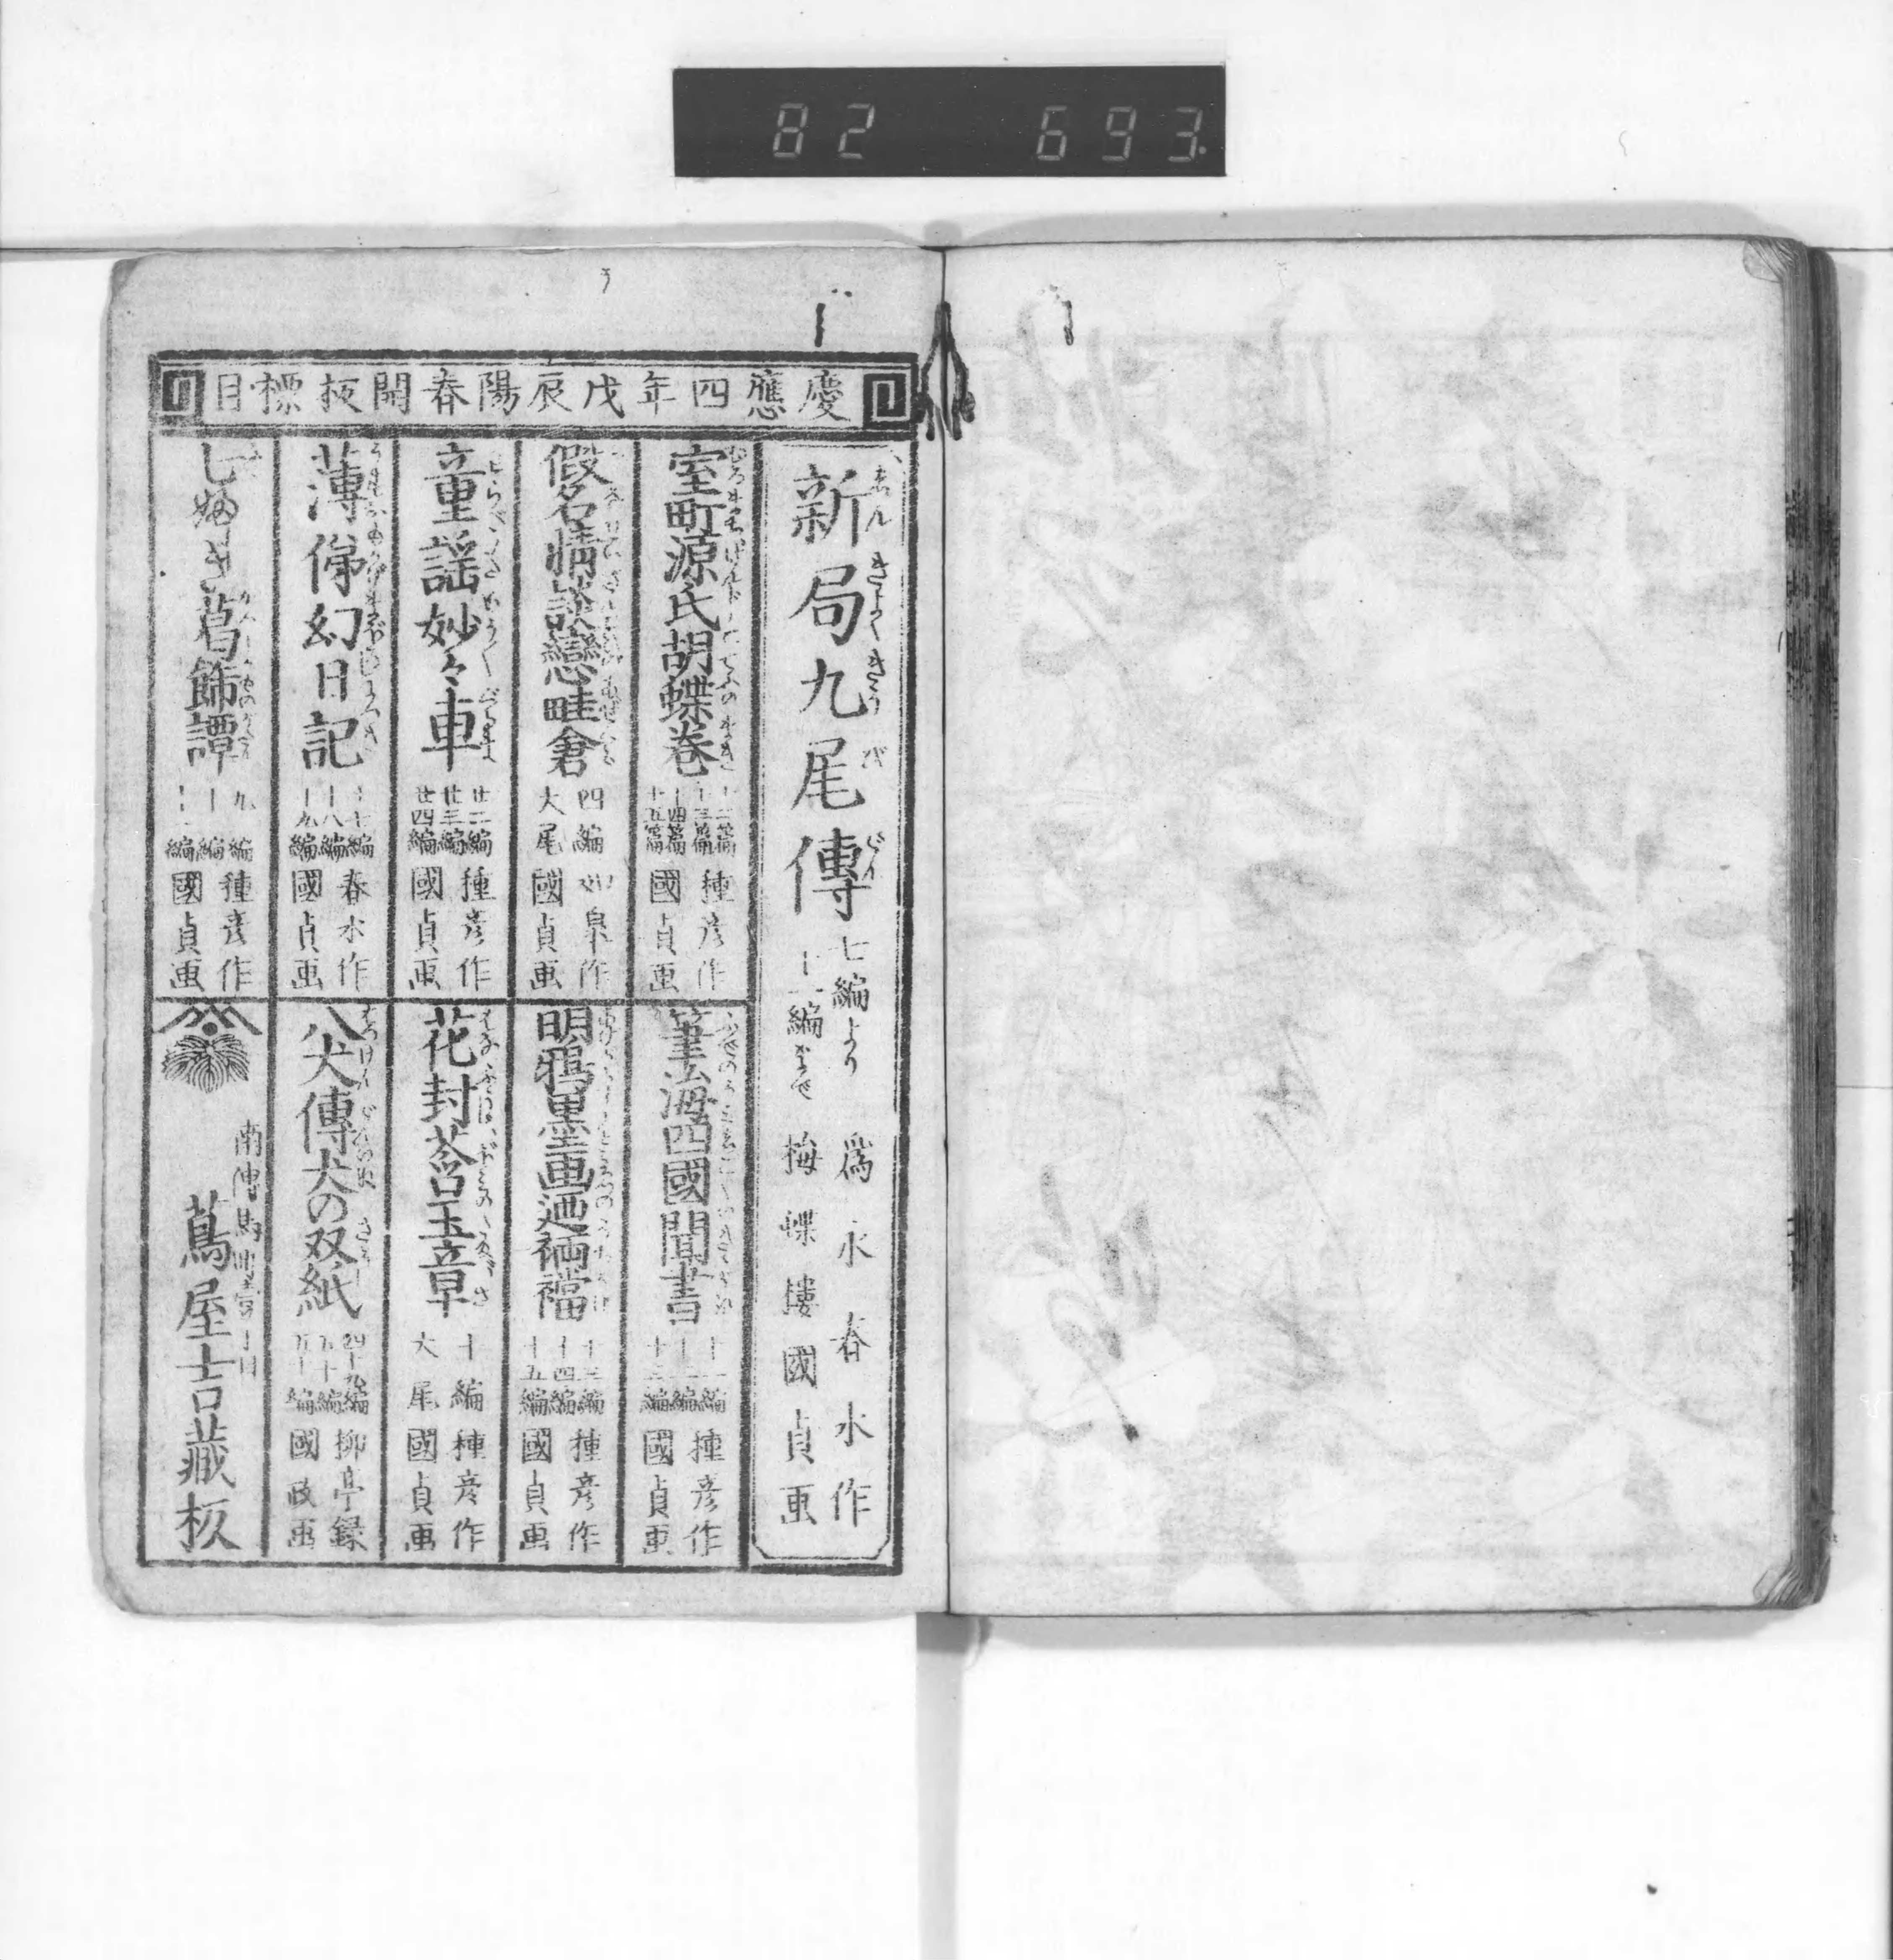 82 693
慶應四年戊辰陽春開板標目
新局九尾傳
七編より
十一編まで
爲永春水作
梅蝶樓國貞画
室町源氏胡蝶巻
十二篇
十三篇
十四篇
十五篇
種彦作
國貞画
假名情談戀畦倉
四編
大尾
如皐作
國貞画
童謡妙々車
廿二編
廿三編
廿四編
種彦作
國貞画
薄俤幻日記
十七編
十八編
十九編
春水作
國貞画
七婦き葛飾譚
九編
十編
十一編
種彦作
國貞画
筆海四國聞書
十一編
十二編
十三編
種彦作
國貞画
明鴉墨画廼裲襠
十三編
十四編
十五編
種彦作
國貞画
花封莟玉章
十編
大尾
種彦作
國貞画
八犬傳犬の双紙
四十九編
五十編
五十一編
柳亭録
國政画
南傳馬町壹丁目
蔦屋吉藏板